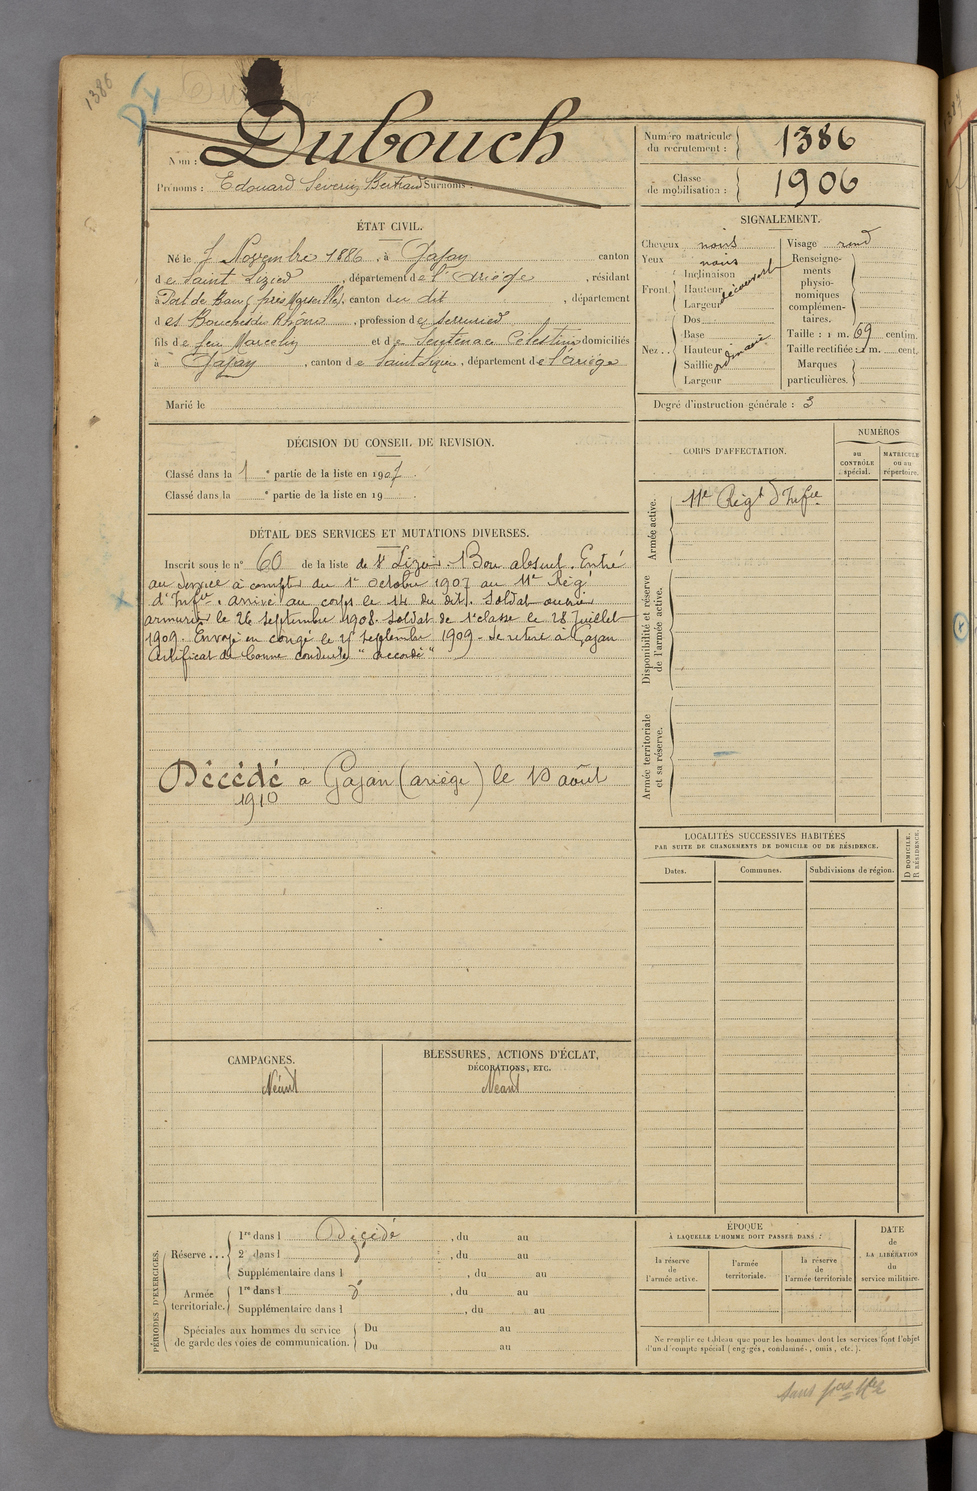 1386
Nom : Dubouch
Prénoms : Edouard Séverin Bertrand Surnoms :
Numéro matricule du recrutement : 1386
Classe de mobilisation : 1906
ÉTAT CIVIL.
Né le 7 Novembre 1886, à Gajan canton
de Saint Lizier, département de l'Ariège, résidant
à Port de Bouc (près Marseille), canton du dit, département
des Bouches du Rhône, profession de serrurier
fils de feu Marcelin et de Sentenac Célestine domiciliés
à Gajan, canton de Saint Lizier, département de l'Ariège
Marié le
SIGNALEMENT.
Cheveux noirs Visage rond
Yeux noirs
Renseignements physionomiques complémentaires.
Front. Inclinaison
Hauteur découvert
Largeur
Nez .. Dos
Base
Hauteur ordinaire
Saillie
Largeur
Taille : 1 m. 69 centim.
Taille rectifiée : 1 m. cent.
Marques particulières.
Degré d'instruction générale : 3
DÉCISION DU CONSEIL DE REVISION.
Classé dans la 1 e partie de la liste en 1907
Classé dans la e partie de la liste en 19
DÉTAIL DES SERVICES ET MUTATIONS DIVERSES.
Inscrit sous le n° 60 de la liste de St Lizier. Bon absent. Entré
au service à compter du 1er octobre 1907 au 11e Rég.
d'Infie. arrivé au corps le 14 du dit. Soldat ouvrier
armurier le 26 septembre 1908. Soldat de 1e classe le 28 juillet
1909. Envoyé en congé le septembre 1909 - se retire à Gajan
Certificat de bonne conduite "accordé"
Décédé à Gajan (ariège) le 10 août
1910
CORPS D'AFFECTATION.
NUMÉROS
au CONTRÔLE spécial.
MATRICULE ou au répertoire.
Armée active.
11e Régt d'Infie
Disponibilité et réserve de l'armée active.
Armée territoriale et sa réserve.
LOCALITÉS SUCCESSIVES HABITÉES
PAR SUITE DE CHANGEMENTS DE DOMICILE OU DE RÉSIDENCE.
Dates.
Communes.
Subdivisions de région.
D DOMICILE.
R RÉSIDENCE.
CAMPAGNES.
Néant
BLESSURES, ACTIONS D'ÉCLAT,
DÉCORATIONS, ETC.
Néant
PÉRIODES D'EXERCICES.
Réserve ... 1re dans l Décédé, du au
2e dans l, du au
Supplémentaire dans l, du au
Armée territoriale. 1re dans l, du au
Supplémentaire dans l, du au
Spéciales aux hommes du service de garde des voies de communication. Du au
Du au
ÉPOQUE
À LAQUELLE L'HOMME DOIT PASSER DANS :
la réserve de l'armée active.
l'armée territoriale.
la réserve de l'armée territoriale
DATE
de
LA LIBÉRATION
du
service militaire.
Ne remplir ce tableau que pour les hommes dont les services font l'objet
d'un décompte spécial (engagés, condamnés, omis, etc.).